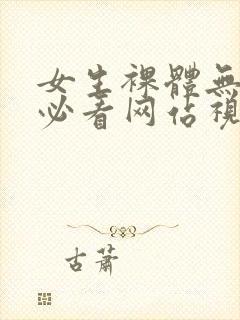 女生裸體無
必看网站視
古蕭